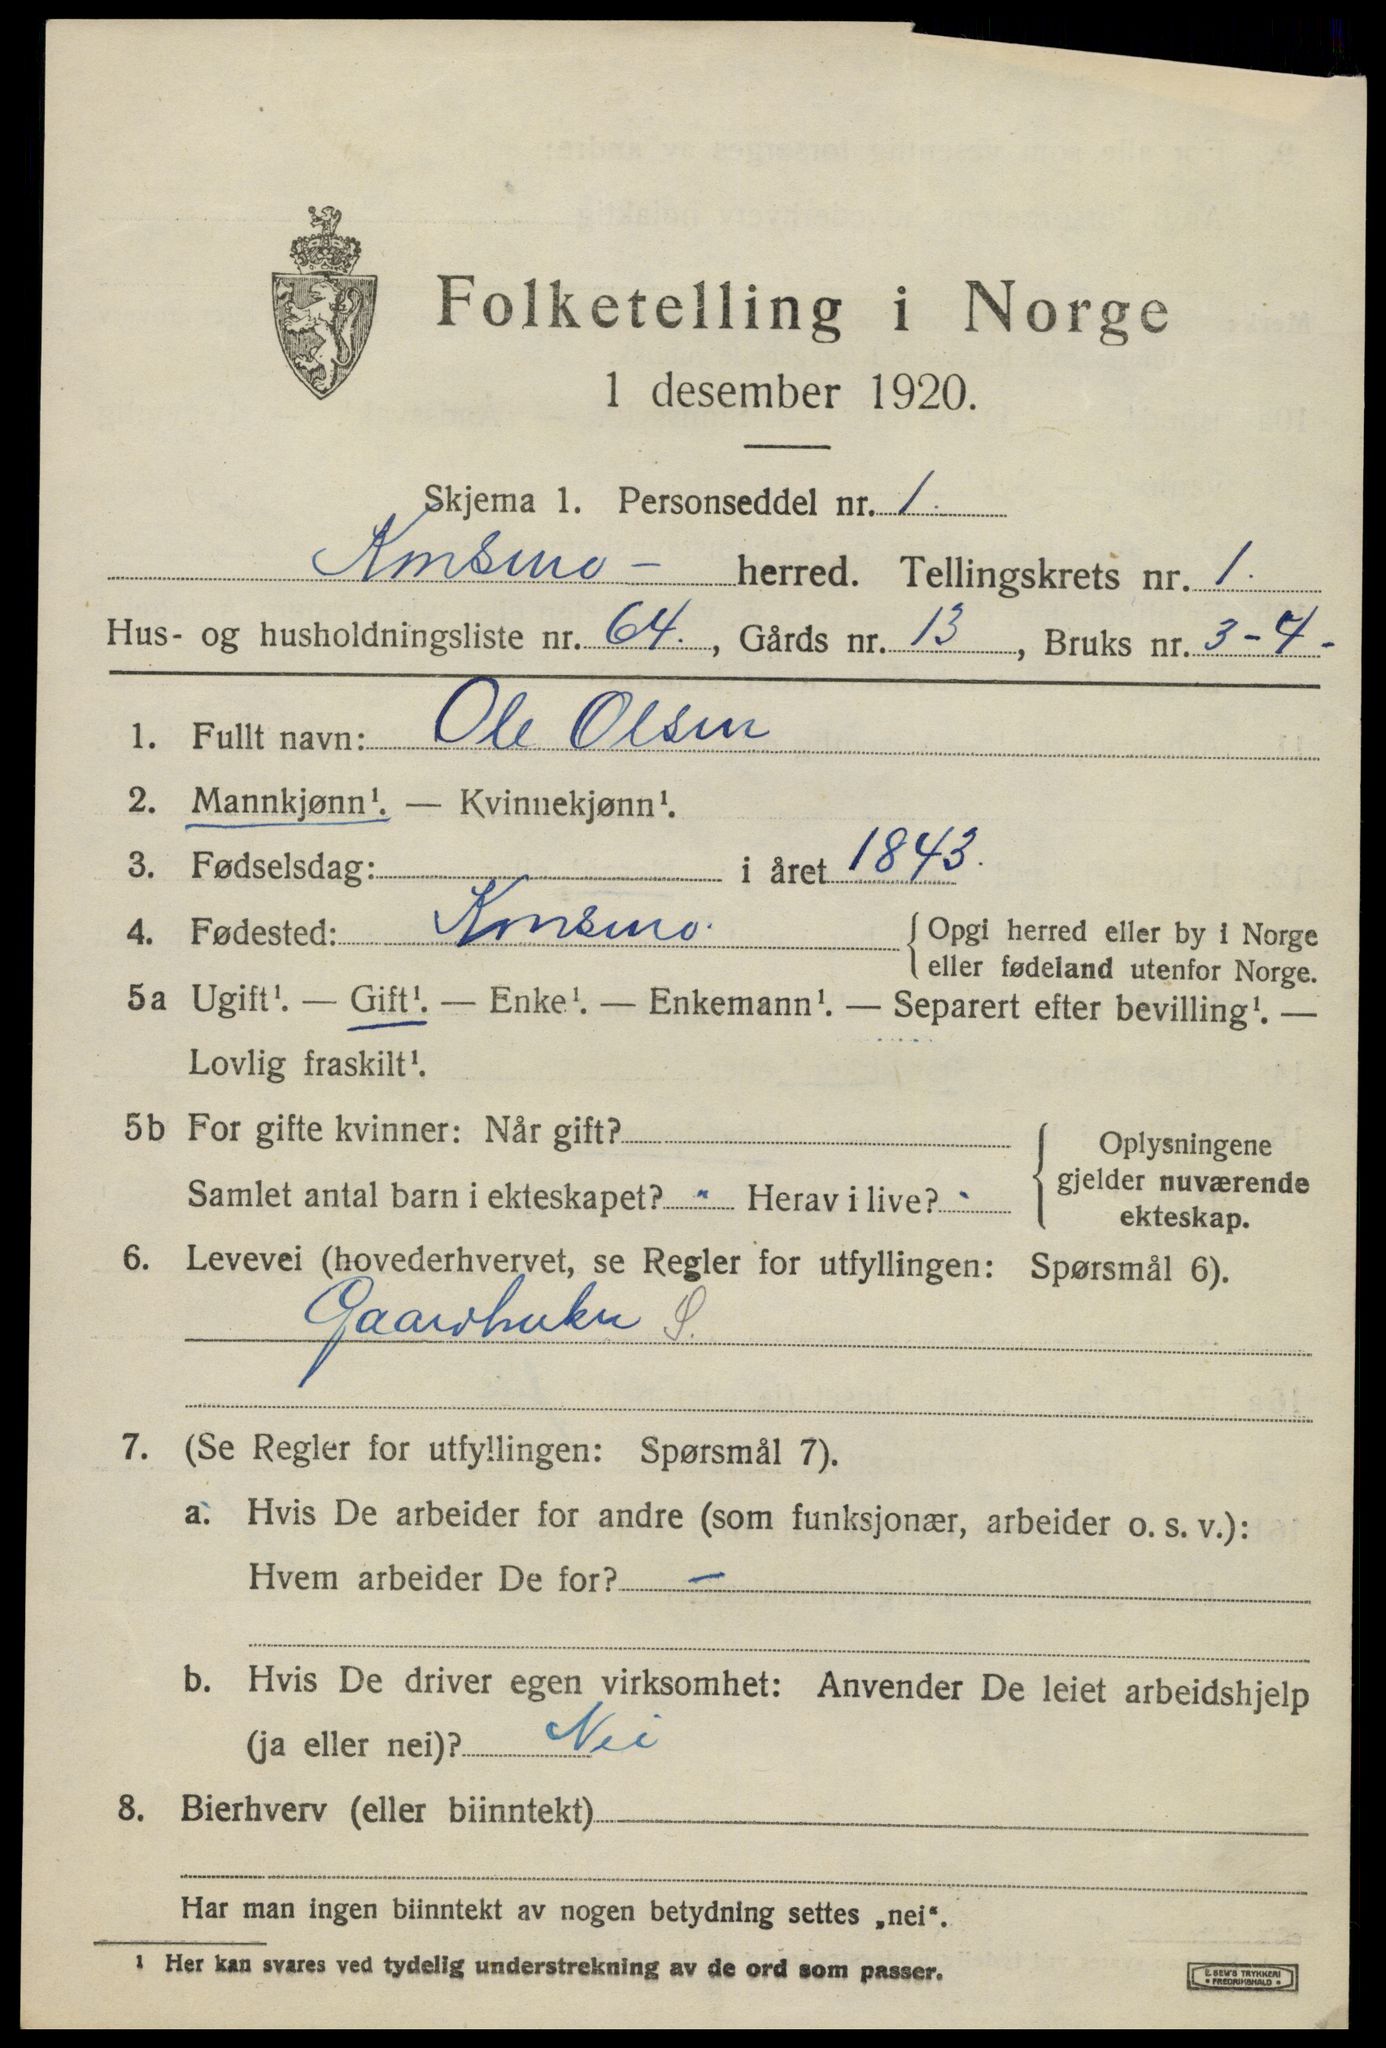 Folketelling i Norge
1 desember 1920.
Skjema 1. Personseddel nr. 1.
Konsmo – herred. Tellingskrets nr. 1.
Hus- og husholdningsliste nr. 64., Gårds nr. 13, Bruks nr. 3-4-
1. Fullt navn: Ole Olsen
2. Mannkjønn¹. — Kvinnekjønn¹.
3. Fødselsdag: i året 1843.
4. Fødested: Konsmo. { Opgi herred eller by i Norge
eller fødeland utenfor Norge.
5a Ugift¹. — Gift¹. — Enke¹. — Enkemann¹. — Separert efter bevilling¹. —
Lovlig fraskilt¹.
5b For gifte kvinner: Når gift?
Samlet antal barn i ekteskapet? " Herav i live? "
{ Oplysningene
gjelder nuværende
ekteskap.
6. Levevei (hovederhvervet, se Regler for utfyllingen: Spørsmål 6).
Gaardbruker S.
7. (Se Regler for utfyllingen: Spørsmål 7).
a. Hvis De arbeider for andre (som funksjonær, arbeider o. s. v.):
Hvem arbeider De for? –
b. Hvis De driver egen virksomhet: Anvender De leiet arbeidshjelp
(ja eller nei)? Nei
8. Bierhverv (eller biinntekt)
Har man ingen biinntekt av nogen betydning settes „nei“.
¹ Her kan svares ved tydelig understrekning av de ord som passer.
E. SEM'S TRYKKERI
FREDRIKSHALD